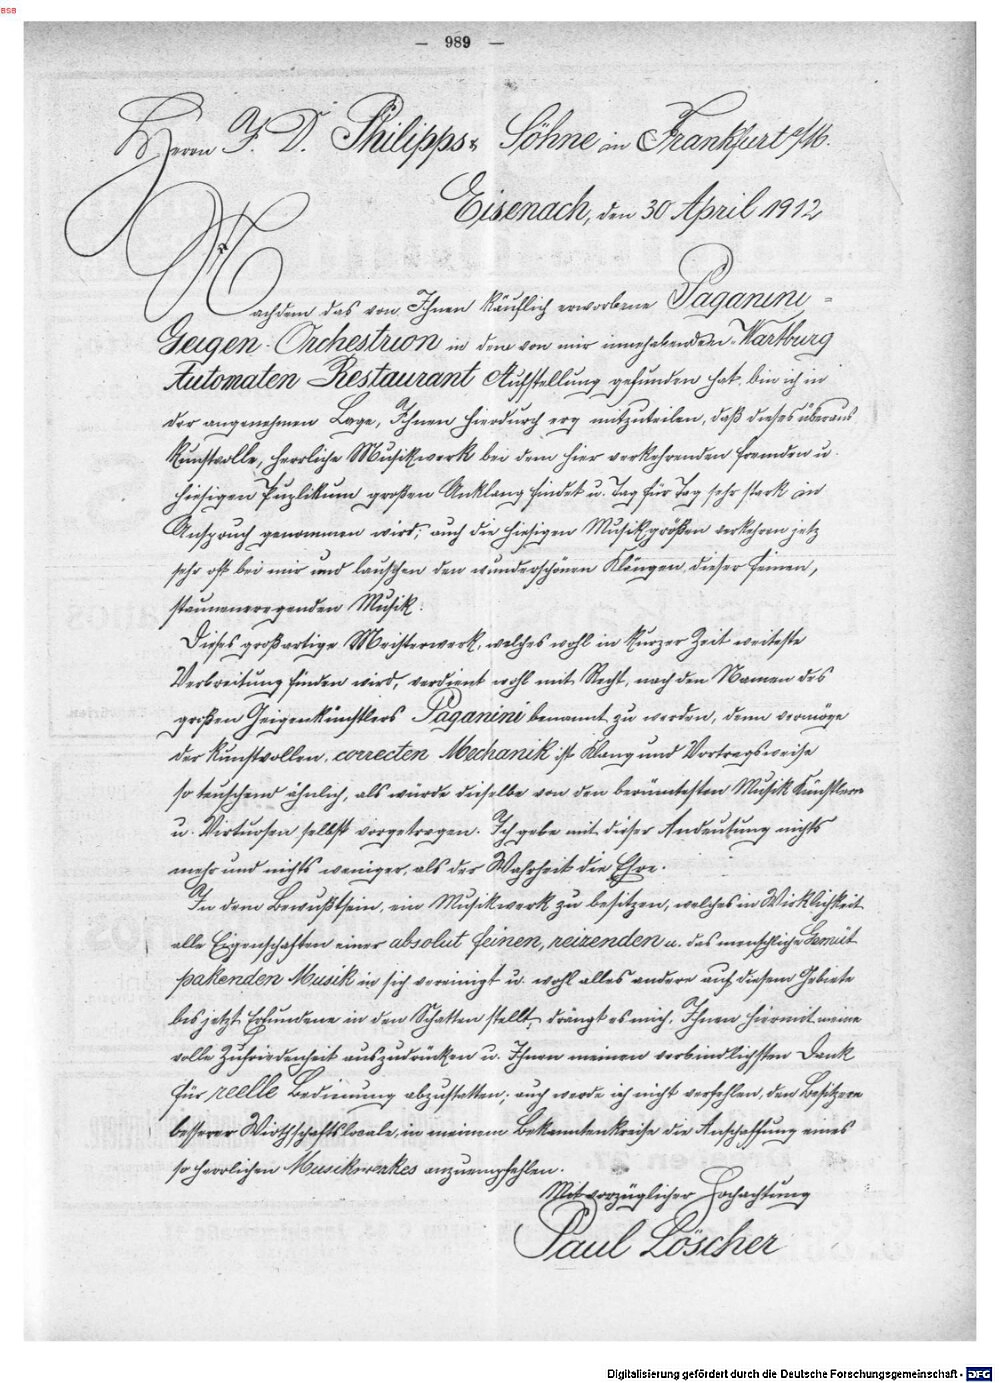 BSB
— 989 —
Herrn J. D. Philipps & Söhne in Frankfurt a/M.
Eisenach, den 30 April 1912
Nachdem das von Ihnen käuflich erworbene Paganini-
Geigen-Orchestrion in dem von mir innehabenden Wartburg
Automaten Restaurant Aufstellung gefunden hat, bin ich in
der angenehmen Lage, Ihnen hierdurch erg mitzuteilen, daß dieses überaus
kunstvolle, herrliche Musikwerk bei dem hier verkehrenden fremden u.
hiesigen Puplikum großen Anklang findet u. Tag für Tag sehr stark in
Anspruch genommen wird; auch die hiesigen Musikgrößen verkehren jetz
sehr oft bei mir und lauschen den wunderschönen Klängen dieser feinen,
staunenerregenden Musik.
Dieses großartige Meisterwerk, welches wohl in kurzer Zeit weiteste
Verbreitung finden wird, verdient wohl mit Recht, nach den Namen des
großen Geigenkünstlers Paganini benannt zu werden, denn vermöge
der kunstvollen, correcten Mechanik ist Klang und Vortragsweise
so teuschend ähnlich, als würde dieselbe von den berümtesten Musik Künstlern
u. Virtuosen selbst vorgetragen. Ich gebe mit dieser Andeutung nichts
mehr und nichts weniger, als der Wahrheit die Ehre.
In dem Bewußtsein, ein Musikwerk zu besitzen, welches in Wirklichkeit
alle Eigenschaften einer absolut feinen, reizenden u. das menschliche Gemüt
pakenden Musik in sich vereinigt u. wohl alles andere auf diesem Gebiete
bis jetzt Erfundene in den Schatten stellt, drängt es mich, Ihnen hiermit meine
volle Zufriedenheit auszudrücken u. Ihnen meinen verbindlichsten Dank
für reelle Bedienung abzustatten; auch werde ich nicht verfehlen, den Besitzern
besserer Wirthschaftslocale, in meinem Bekanntenkreise die Anschaffung eines
so herrlichen Musikwerkes anzuempfehlen.
Mit vorzüglicher Hochachtung
Paul Löscher
Digitalisierung gefördert durch die Deutsche Forschungsgemeinschaft - DFG